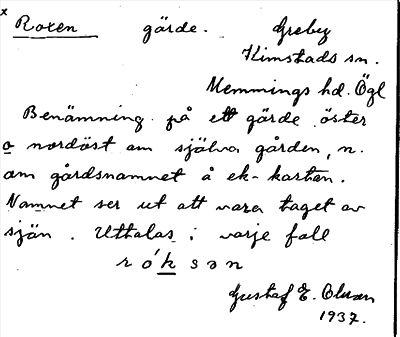 x
Roxen gärde. Greby
Kimstads sn.
Memmings hd. Ögl
Benämning på ett gärde öster
o nordöst om själva gården, n.
om gårdsnamnet å ek-kartan.
Namnet ser ut att vara taget av
sjön. Uttalas i varje fall
rókson
Gustaf E. Olsson
1937.